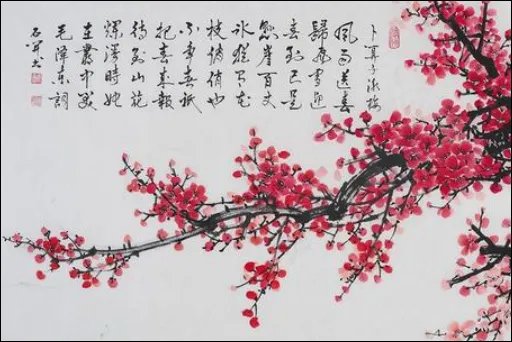 卜算子詠梅
風雨送春
歸飛雪迎
春到已是
懸崖百丈
冰猶有花
枝俏俏也
不争春祇
把春来報
待到山花
爛漫時她
在叢中笑
毛澤东詞